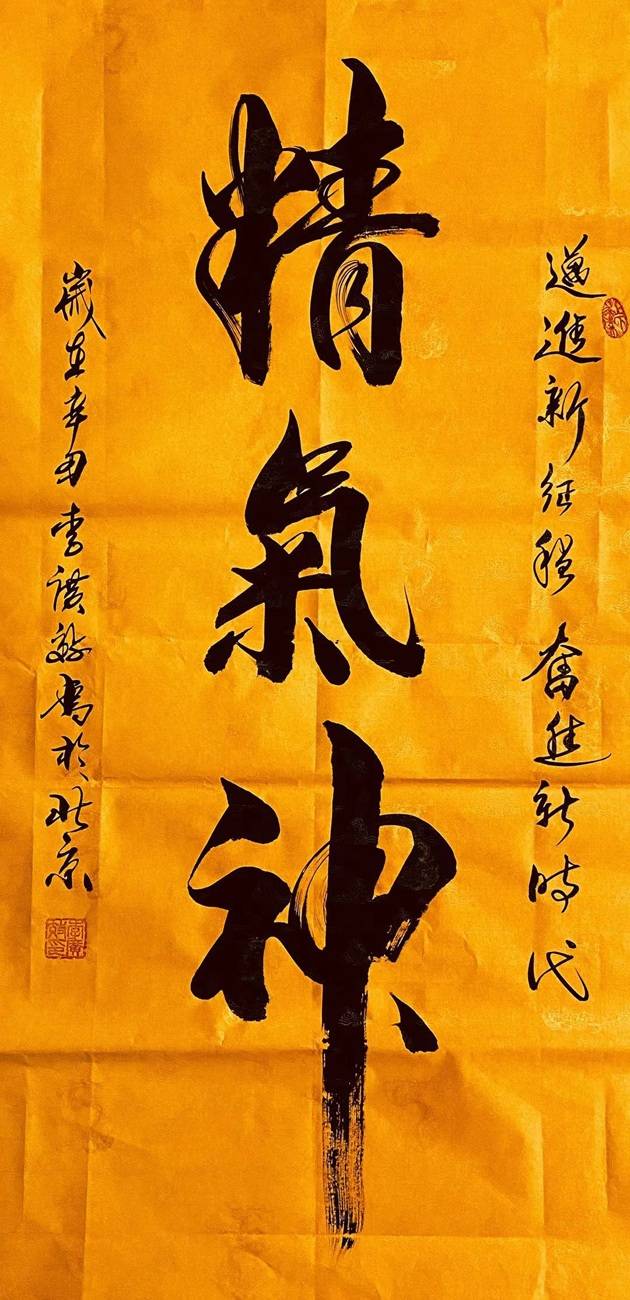 邁進新征程 奮進新時代
精氣神
歲在辛丑 李 寫於北京